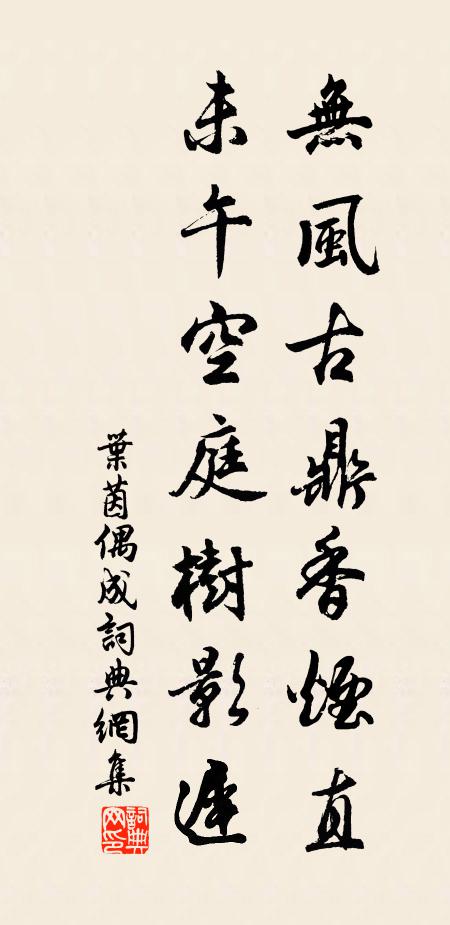 無風古鼎香煙直
未午空庭樹影遲
葉茵偶成詞典網集
詞典網印